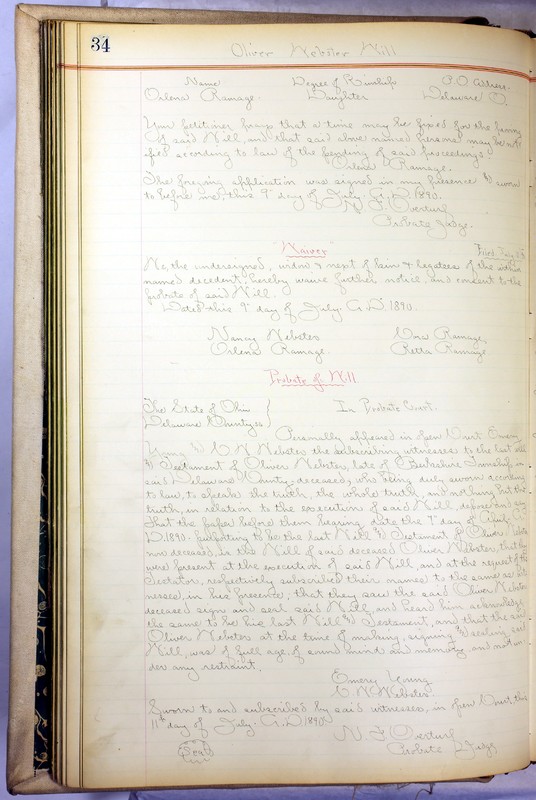 34
Oliver Webster Will
Name Degree of Kinship P.O. Address
Orlena Ramage Daughter Delaware O.
Your petitioner prays that a time may be fixed for the proving
of said Will, and that said above named persons may be noti
fied according to law of the pending of said proceedings.
Orlena Ramage.
This foregoing application was signed in my presence & sworn
to before me, this 9" day of July A.D. 1890.
N. F. Overturf,
Probate Judge.
Waiver Filed July
We, the undersigned, widow & next of kin & legatees of the within
named decedent, hereby waive further notice, and consent to the
probate of said Will.
Dated this 9" day of July A.D. 1890.
Nancy Webster Ora Ramage,
Orlena Ramage. Retta Ramage
Probate of Will
The State of Ohio
Delaware County, ss In Probate Court.
Personally appeared in open Court Emery
Young & C. W. Webster the subscribing witnesses to the last will
& Testament of Oliver Webster, late of Berkshire Township in
said Delaware County, deceased, who being duly sworn according
to law, to speak the truth, the whole truth, and nothing but the
truth, in relation to the execution of said Will, depose and say
that the paper before them bearing date the 7" day of April A.
D. 1890. purporting to be the last Will & Testament of Oliver Webster
now deceased, is the Will of said deceased Oliver Webster, that they
were present at the execution of said Will, and at the request of the
Testator, respectively subscribed their names to the same as wit
nesses, in his presence; that they saw the said Oliver Webster
deceased sign and seal said Will, and heard him acknowledge
the same to be his last Will & Testament, and that the said
Oliver Webster at the time of making, signing & sealing said
Will, was of full age, of sound mind and memory, and not un
der any restraint.
Emery Young
C. W. Webster.
Sworn to and subscribed by said witnesses, in open Court, this
11" day of July. A.D. 1890.
N. F. Overturf
Seal Probate Judge